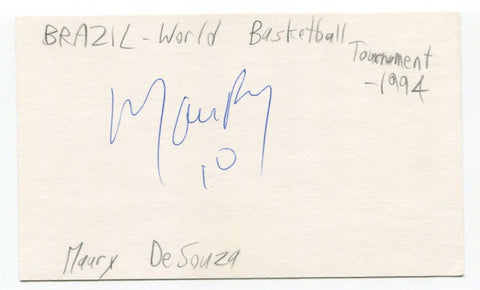 BRAZIL - World Basketball
Tournament
-1994
Maury
10
Maury DeSouza